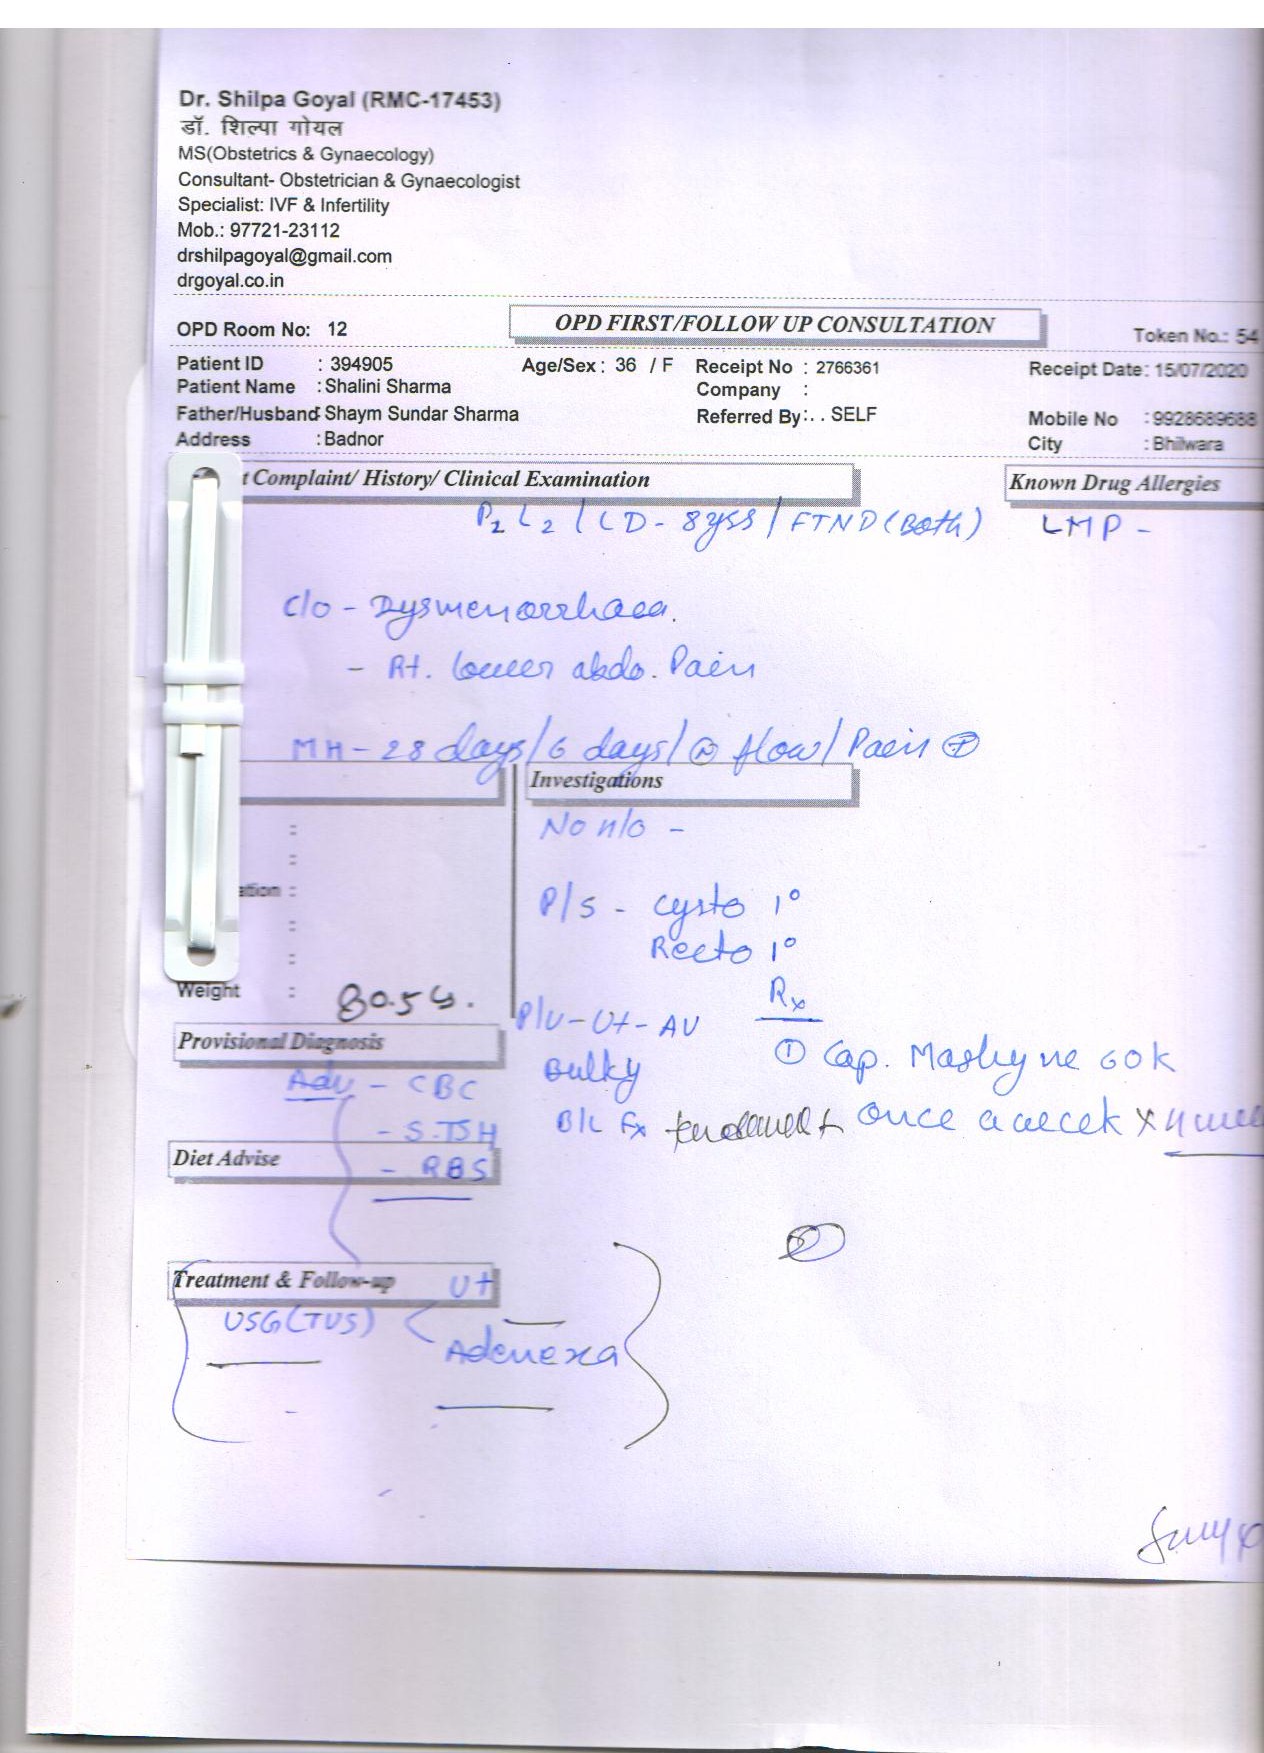 Dr. Shilpa Goyal (RMC-17453)
डॉ. शिल्पा गोयल
MS(Obstetrics & Gynaecology)
Consultant- Obstetrician & Gynaecologist
Specialist: IVF & Infertility
Mob.: 97721-23112
drshilpagoyal@gmail.com
drgoyal.co.in
OPD Room No: 12 OPD FIRST/FOLLOW UP CONSULTATION Token No.: 54
Patient ID : 394905 Age/Sex : 36 / F Receipt No : 2766361 Receipt Date: 15/07/2020
Patient Name : Shalini Sharma Company :
Father/Husband: Shaym Sundar Sharma Referred By: . . SELF Mobile No : 9928689688
Address : Badnor City : Bhilwara
t Complaint/ History/ Clinical Examination Known Drug Allergies
P2 L2 / LD - 8 yrs / FTND (Both) LMP -
c/o - Dysmenorrhaea.
- Rt. lower abdo. Pain
MH - 28 days/ 6 days/ (N) flow/ Pain (+)
Investigations
No n/o -
P/S - cysto 1°
Recto 1°
Weight : 80.5
Rx
P/V - Ut - AV
(1) Cap. 60k
Provisional Diagnosis
Bulky
Adv - CBC
B/L Fx once a week x 4
- S. TSH
Diet Advise - RBS
Treatment & Follow-up Ut
USG (TVS) <
Adenexa